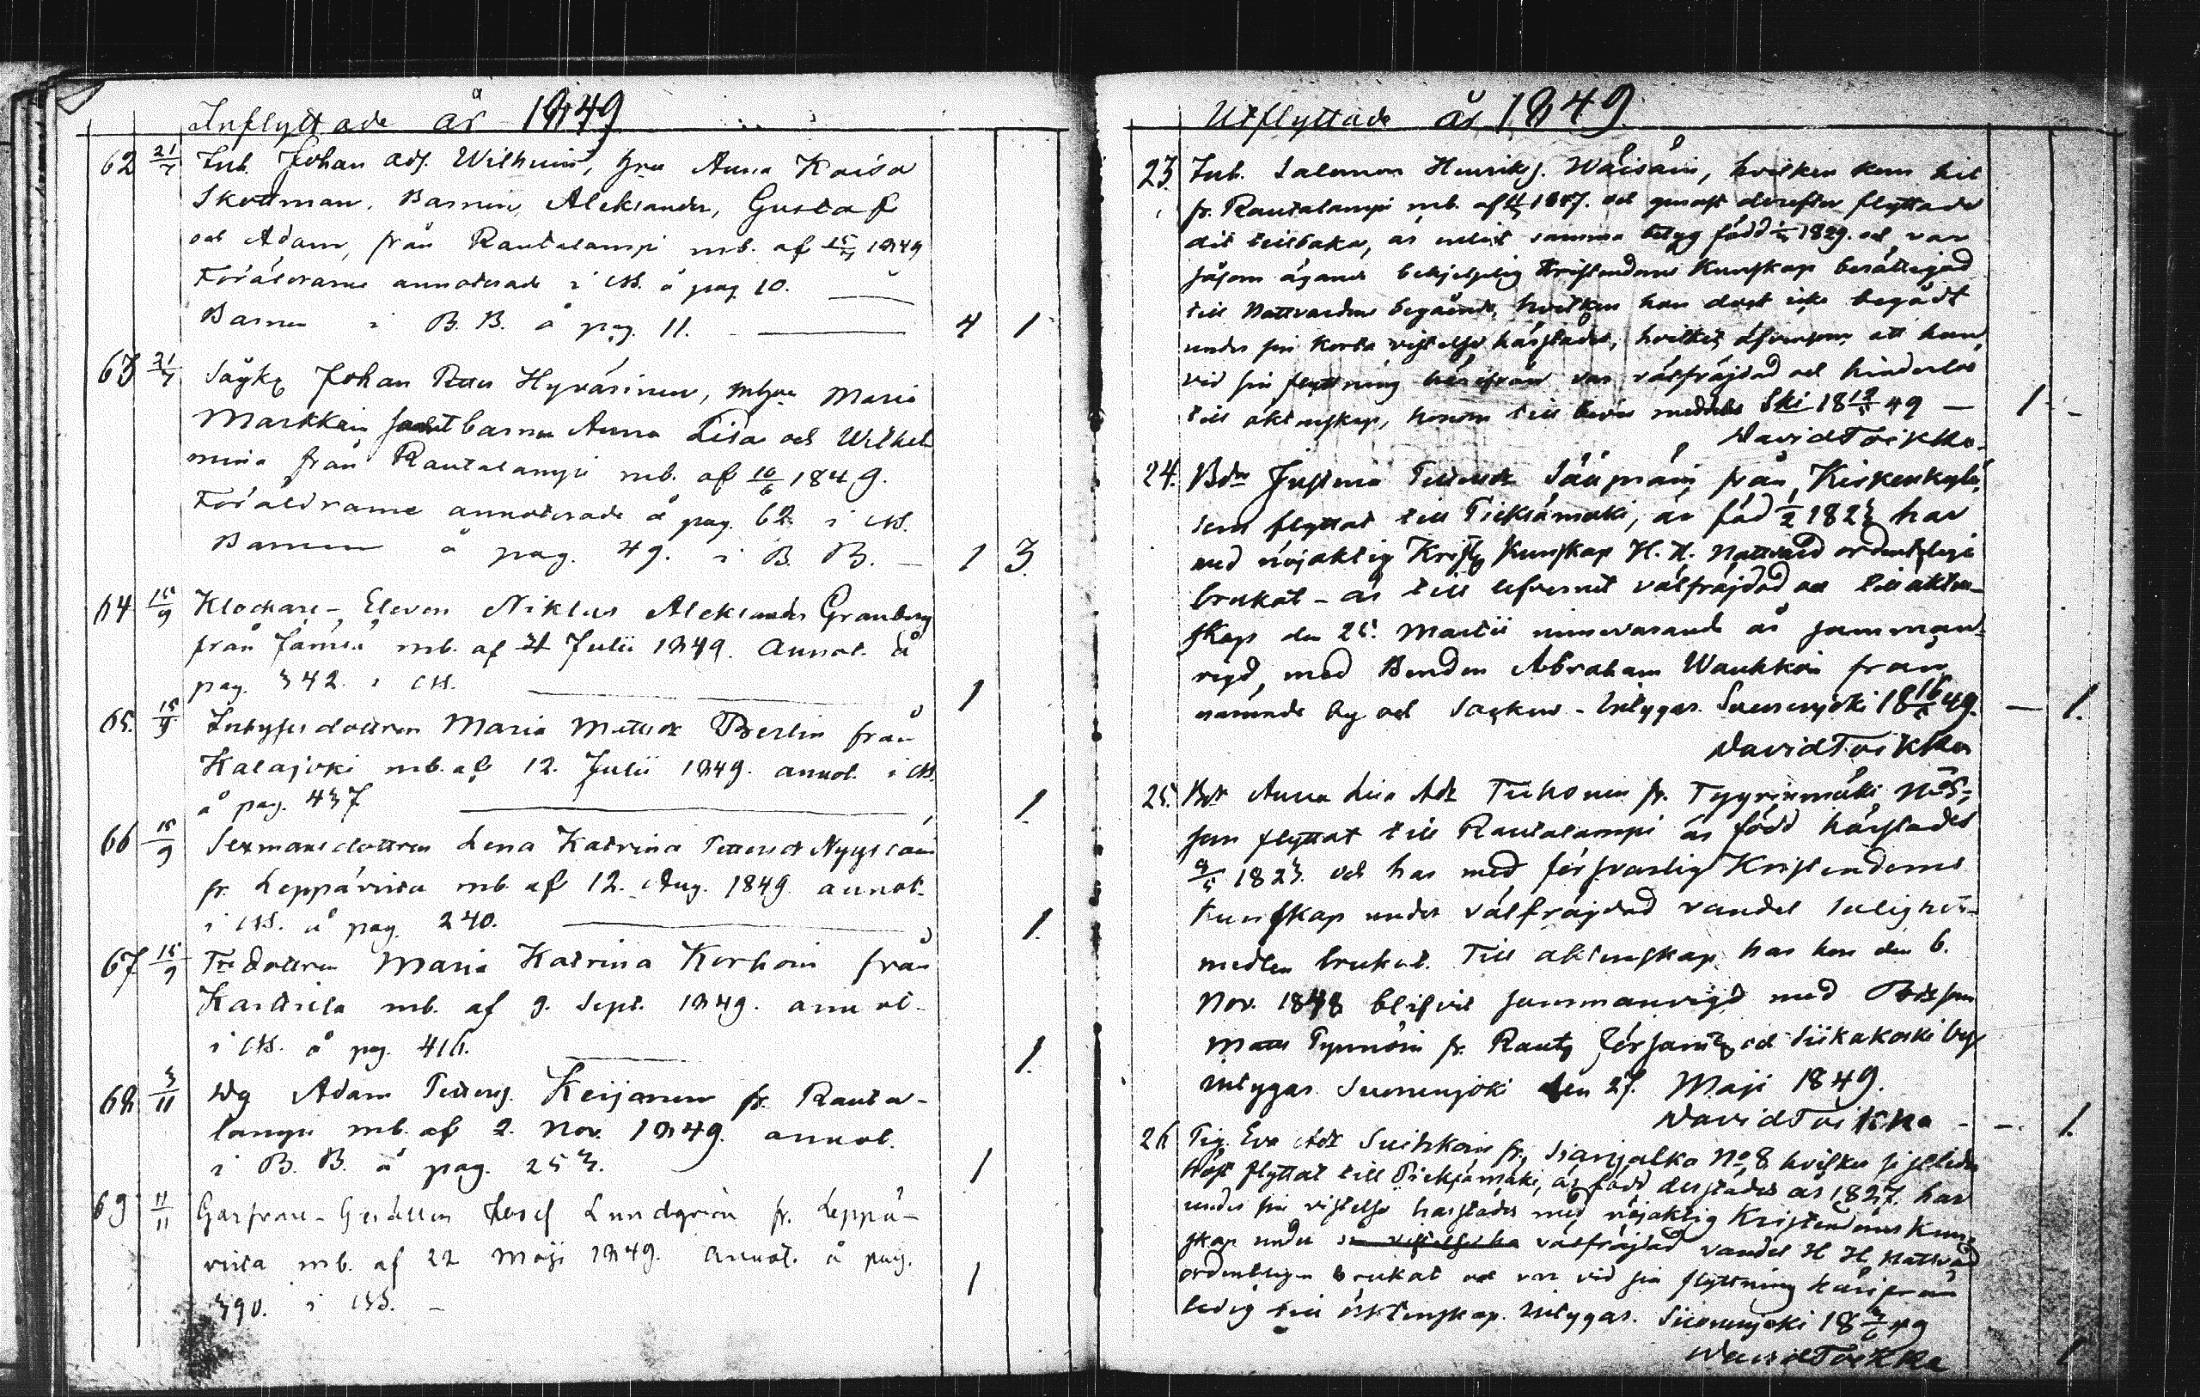 Inflyttade år 1849
62 21/7 Inh. Johan Adf. Wilhelm, hru Anna Kaisa
Skottman, Barnen, Aleksander, Gustaf
och Adam, från Rautalampi mb. af 1849
Föräldrarne annoterade i å pag 10.
Barnen i B. B. å pag. 11. 4 1
63 21/7 Johan Petter Hyvärinen, Maria
Markkain barnen Anna Lisa och Wilhel
mina från Rautalampi mb. af 10/6 1849.
Föräldrarne annoterade å pag. 62 i
Barnen å pag. 49. i B. B. 1 3
64 15/9 Klockare-Eleven Niklas Aleksander Granberg
från Jämsä mb. af Julii 1849. Annot. å
pag. 342. i 1
65. 15/9 Inhysesdottren Maria Berlin från
Kalajoki mb. af 12. Julii 1849. annot. i
å pag. 437 1
66 15/9 Sexmansdottren Lena Katrina
fr. Leppävirta mb. af 12. Aug. 1849 annot.
i å pag. 240. 1
67 15/9 dottren Maria Katrina Korhoin från
mb. af 9. Sept. 1849. annot.
i å pag. 416. 1
68 3/11 Adam Keijonen fr. Rauta-
lampi mb. af 2. Nov. 1849. annot.
i B. B. å pag. 253. 1
69 11/11 Garfvare-Gesällen Josef Lundgren fr. Leppä-
virta mb. af 22 Maji 1849. Annot. å pag.
390. i 1
Utflyttade år 1849.
23. Inh. Salomon Henriks. Wäisäin, hvilken kom hit
fr. Rautalampi mb. af 1847. och genast derefter flyttade
dit tillbaka, är enligt samma betyg född 1829. och var
såsom ägande behjelplig Kristendoms Kunskap berättigad
till Nattvardens begående, hvilken han dock icke begådt
under sin korta vistelse härstädes, hvilket äfvensom att han
vid sin flyttning härifrån var välfräjdad och hinderlös
till äktenskap, honom till bevis meddelas 18 49 1
David Toikka.
24. Justina från Kirkonkylä
som flyttat till Pieksämäki, är född 1/2 1823 har
med nöjaktig Kristl. Kunskap H. H. Nattvard ordentligen
brukat - är till lefvernet välfräjdad och till äkten-
skap den 25. Martii innevarande år samman-
vigd, med Bonden Abraham Wauhkoin från
nämnde by och Socken - Intygar. Suonenjoki 18 49. 1.
David Toikka
25. Anna Lisa Tiihonen fr. Tyyrinmäki No 5,
som flyttat till Rautalampi är född härstädes
9/5 1823. och har med försvarlig Kristendoms
kunskap under välfräjdad vandel salighets-
medlen brukat. Till äktenskap har hon den 6.
Nov. 1848 blifvit sammanvigd med
Matts fr. Raut. församl. och Siikakoski by.
Intygar. Suonenjoki den 27. Maji 1849.
David Toikka 1.
26 Pig. Eva Suihkoin fr. No 8 hvilken sistlidne
höst flyttat till Pieksämäki, är född derstädes år 1827. har
under sin vistelse härstädes med nöjaktig Kristendoms Kun-
skap under välfräjdad vandel H H. Nattvard
ordentligen brukat och var vid sin flyttning härifrån
ledig till äktenskap. Intygar. Suonenjoki 18 49
David Toikka 1